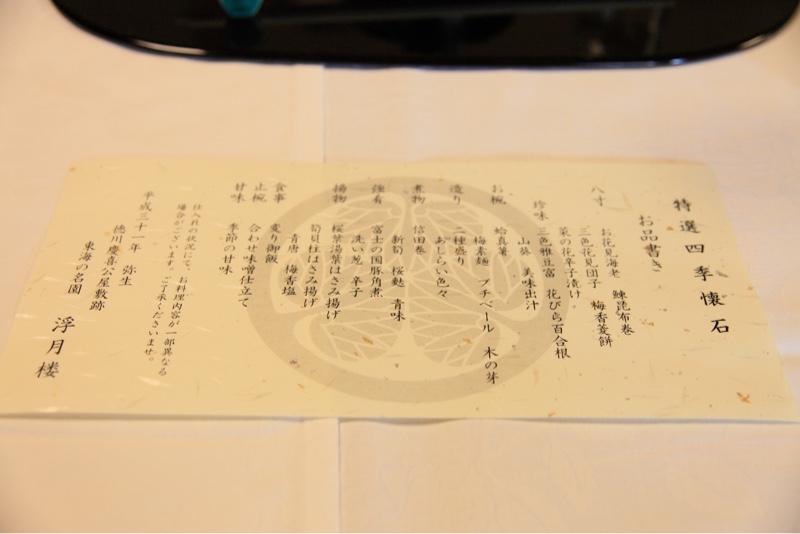 特選四季懐石
お品書き
八寸 お花見海老 鰊昆布巻
三色花見団子 梅香菱餅
菜の花辛子漬け
珍味 三色雅豆富 花びら百合根
山葵 美味出汁
お椀 蛤真薯
梅素麺 プチベール 木の芽
造り 二種盛り
あしらい色々
煮物 信田巻
新筍 桜麩 青味
強肴 富士の国豚角煮
洗い葱 辛子
揚物 桜葉湯葉はさみ揚げ
筍貝柱はさみ揚げ
青唐 梅香塩
食事 変り御飯
止椀 合わせ味噌仕立て
甘味 季節の甘味
仕入れの状況にて、お料理内容が一部異なる
場合がございます。ご了承くださいませ。
平成三十一年 弥生
徳川慶喜公屋敷跡
東海の名園 浮月楼